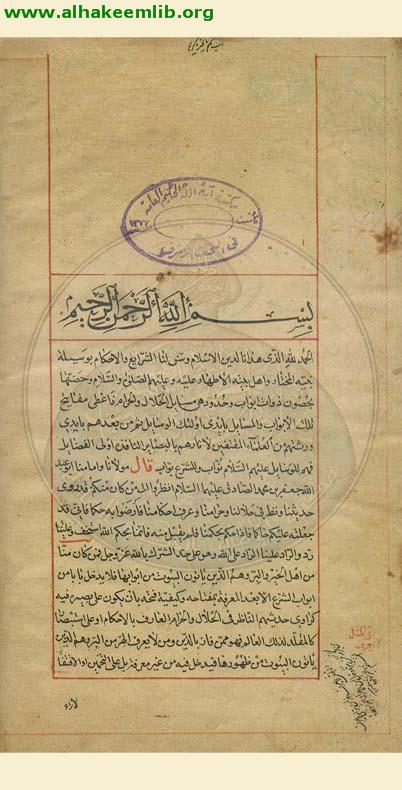 www.alhakeemlib.org
مكتبة آية الله الحكيم العامة
بسم الله الرحمن الرحيم
الحمد لله الذي هدانا لدين الاسلام وسن لنا الشرايع والاحكام بوسيلة
نبيه المختار واهل بيته الاطهار عليه وعليهم الصلوة والسلام وحصنها
بحصون ذوات ابواب وحدود هي مسايل الحلال والحرام فاعطى مفاتيح
تلك الابواب والمسايل بايدي اولئك الوسايل ثم من بعدهم بايدي
ورثتهم من العلماء المقتفين لاثارهم بالبصاير الناقدة اولى الفضايل
فهم للوسايل عليهم السلام نواب وللشرع بواب قال مولانا وامامنا ابو عبد
الله جعفر بن محمد الصادق عليهما السلام انظروا الى من كان منكم قد روى
حديثنا ونظر في حلالنا وحرامنا وعرف احكامنا فارضوا به حكما فاني قد
جعلته عليكم حاكما فاذا حكم بحكمنا فلم يقبل منه فانما بحكم الله استخف وعلينا
رد والراد علينا الراد على الله وهو على حد الشرك بالله عز وجل فمن كان منا
من اهل الخبر والبر وهم الذين ياتون البيوت من ابوابها فلا يدخل بابا من
ابواب الشرع الا بعد المعرفة بمفتاحه وكيفية فتحه بان يكون على بصيرة فيه
كراوي حديثهم الناظر في الحلال والحرام العارف بالاحكام او على استبصار
كالمقلد لذلك العالم فهو ممن فاز بالدين ومن لا يعرف الهر من البر وهم الذين
ياتون البيوت من ظهورها فيدخل فيه من غير معرفة بل على التخمين او الاقتفا
لاراء